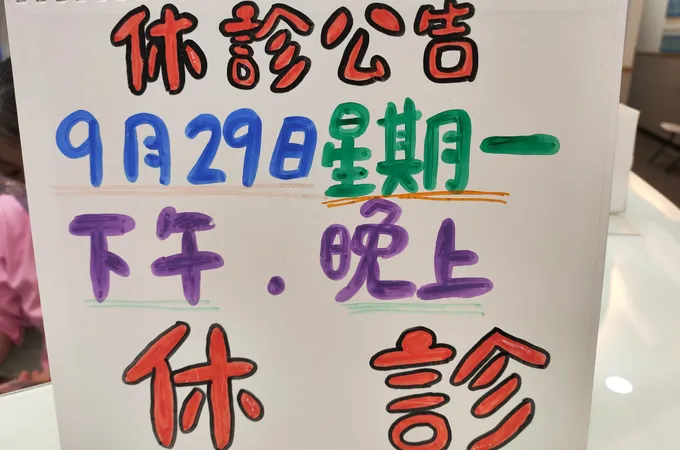 休診公告
9月29日星期一
下午.晚上
休診